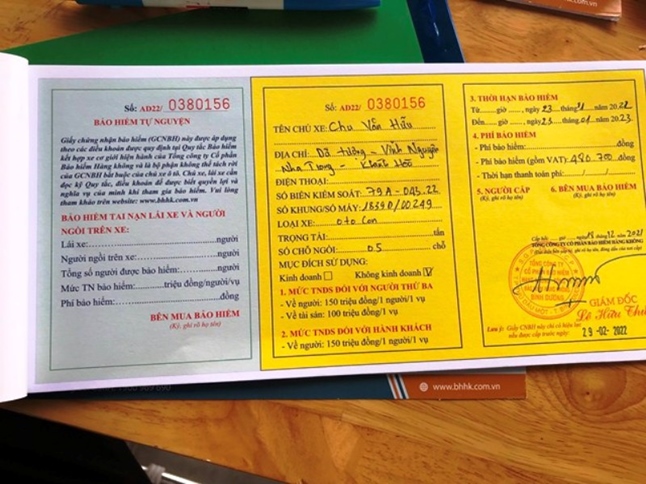 Số: AD22/ 0380156
BẢO HIỂM TỰ NGUYỆN
Giấy chứng nhận bảo hiểm (GCNBH) này được áp dụng
theo các điều khoản được quy định tại Quy tắc Bảo hiểm
kết hợp xe cơ giới hiện hành của Tổng công ty Cổ phần
Bảo hiểm Hàng không và là bộ phận không thể tách rời
của GCNBH bắt buộc của chủ xe ô tô. Chủ xe, lái xe cần
đọc kỹ Quy tắc, điều khoản để được biết quyền lợi và
nghĩa vụ của mình khi tham gia bảo hiểm. Vui lòng
tham khảo trên website: www.bhhk.com.vn
BẢO HIỂM TAI NẠN LÁI XE VÀ NGƯỜI
NGỒI TRÊN XE:
Lái xe: người
Người ngồi trên xe: người
Tổng số người được bảo hiểm: người
Mức TN bảo hiểm: triệu đồng/người/vụ
Phí bảo hiểm: đồng
BÊN MUA BẢO HIỂM
(Ký, ghi rõ họ tên)
Số: AD22/ 0380156
TÊN CHỦ XE: Chu Văn Hữu
ĐỊA CHỈ: Dã tượng - Vĩnh Nguyên
Nha Trang - Khánh Hòa
ĐIỆN THOẠI:
SỐ BIỂN KIỂM SOÁT: 79A - 043.22
SỐ KHUNG/SỐ MÁY: /00249
LOẠI XE: oto con
TRỌNG TẢI: tấn
SỐ CHỖ NGỒI: 05 chỗ
MỤC ĐÍCH SỬ DỤNG:
Kinh doanh Không kinh doanh V
1. MỨC TNDS ĐỐI VỚI NGƯỜI THỨ BA
- Về người: 150 triệu đồng/1 người/1 vụ
- Về tài sản: 100 triệu đồng/1 vụ
2. MỨC TNDS ĐỐI VỚI HÀNH KHÁCH
- Về người: 150 triệu đồng/1 người/1 vụ
3. THỜI HẠN BẢO HIỂM
Từ: giờ , ngày 23 tháng năm 2022
Đến: giờ , ngày 23 tháng 01 năm 2023
4. PHÍ BẢO HIỂM
- Phí bảo hiểm: đồng
- Phí bảo hiểm (gồm VAT): 480.700 đồng
- Thời hạn thanh toán phí: / /
5. NGƯỜI CẤP 6. BÊN MUA BẢO HIỂM
(Ký, ghi rõ họ tên) (Ký, ghi rõ họ tên)
Cấp hồi: giờ ngày 18 12, 2021
TỔNG CÔNG TY CỔ PHẦN BẢO HIỂM HÀNG KHÔNG
GIÁM ĐỐC
Lê Hữu
Lưu ý: Giấy CNBH này chỉ có hiệu lực
nếu được cấp trước ngày: 29 -02- 2022
www.bhhk.com.vn